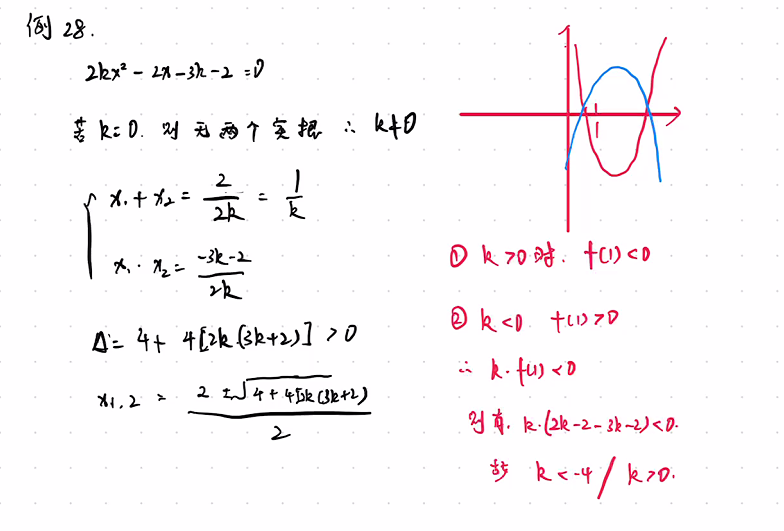 例 28.
2kx² - 2x - 3k - 2 = 0
若 k = 0. 则 无 两 个 实 根 ∴ k ≠ 0
x₁ + x₂ = 2/2k = 1/k
x₁ · x₂ = (-3k-2)/2k
Δ = 4 + 4[2k(3k+2)] > 0
x₁,₂ = (2 ± √(4 + 4[2k(3k+2)))/2
1
① k > 0 时. f(1) < 0
② k < 0 f(1) > 0
∴ k · f(1) < 0
则有. k·(2k-2-3k-2) < 0.
故 k < -4 / k > 0.